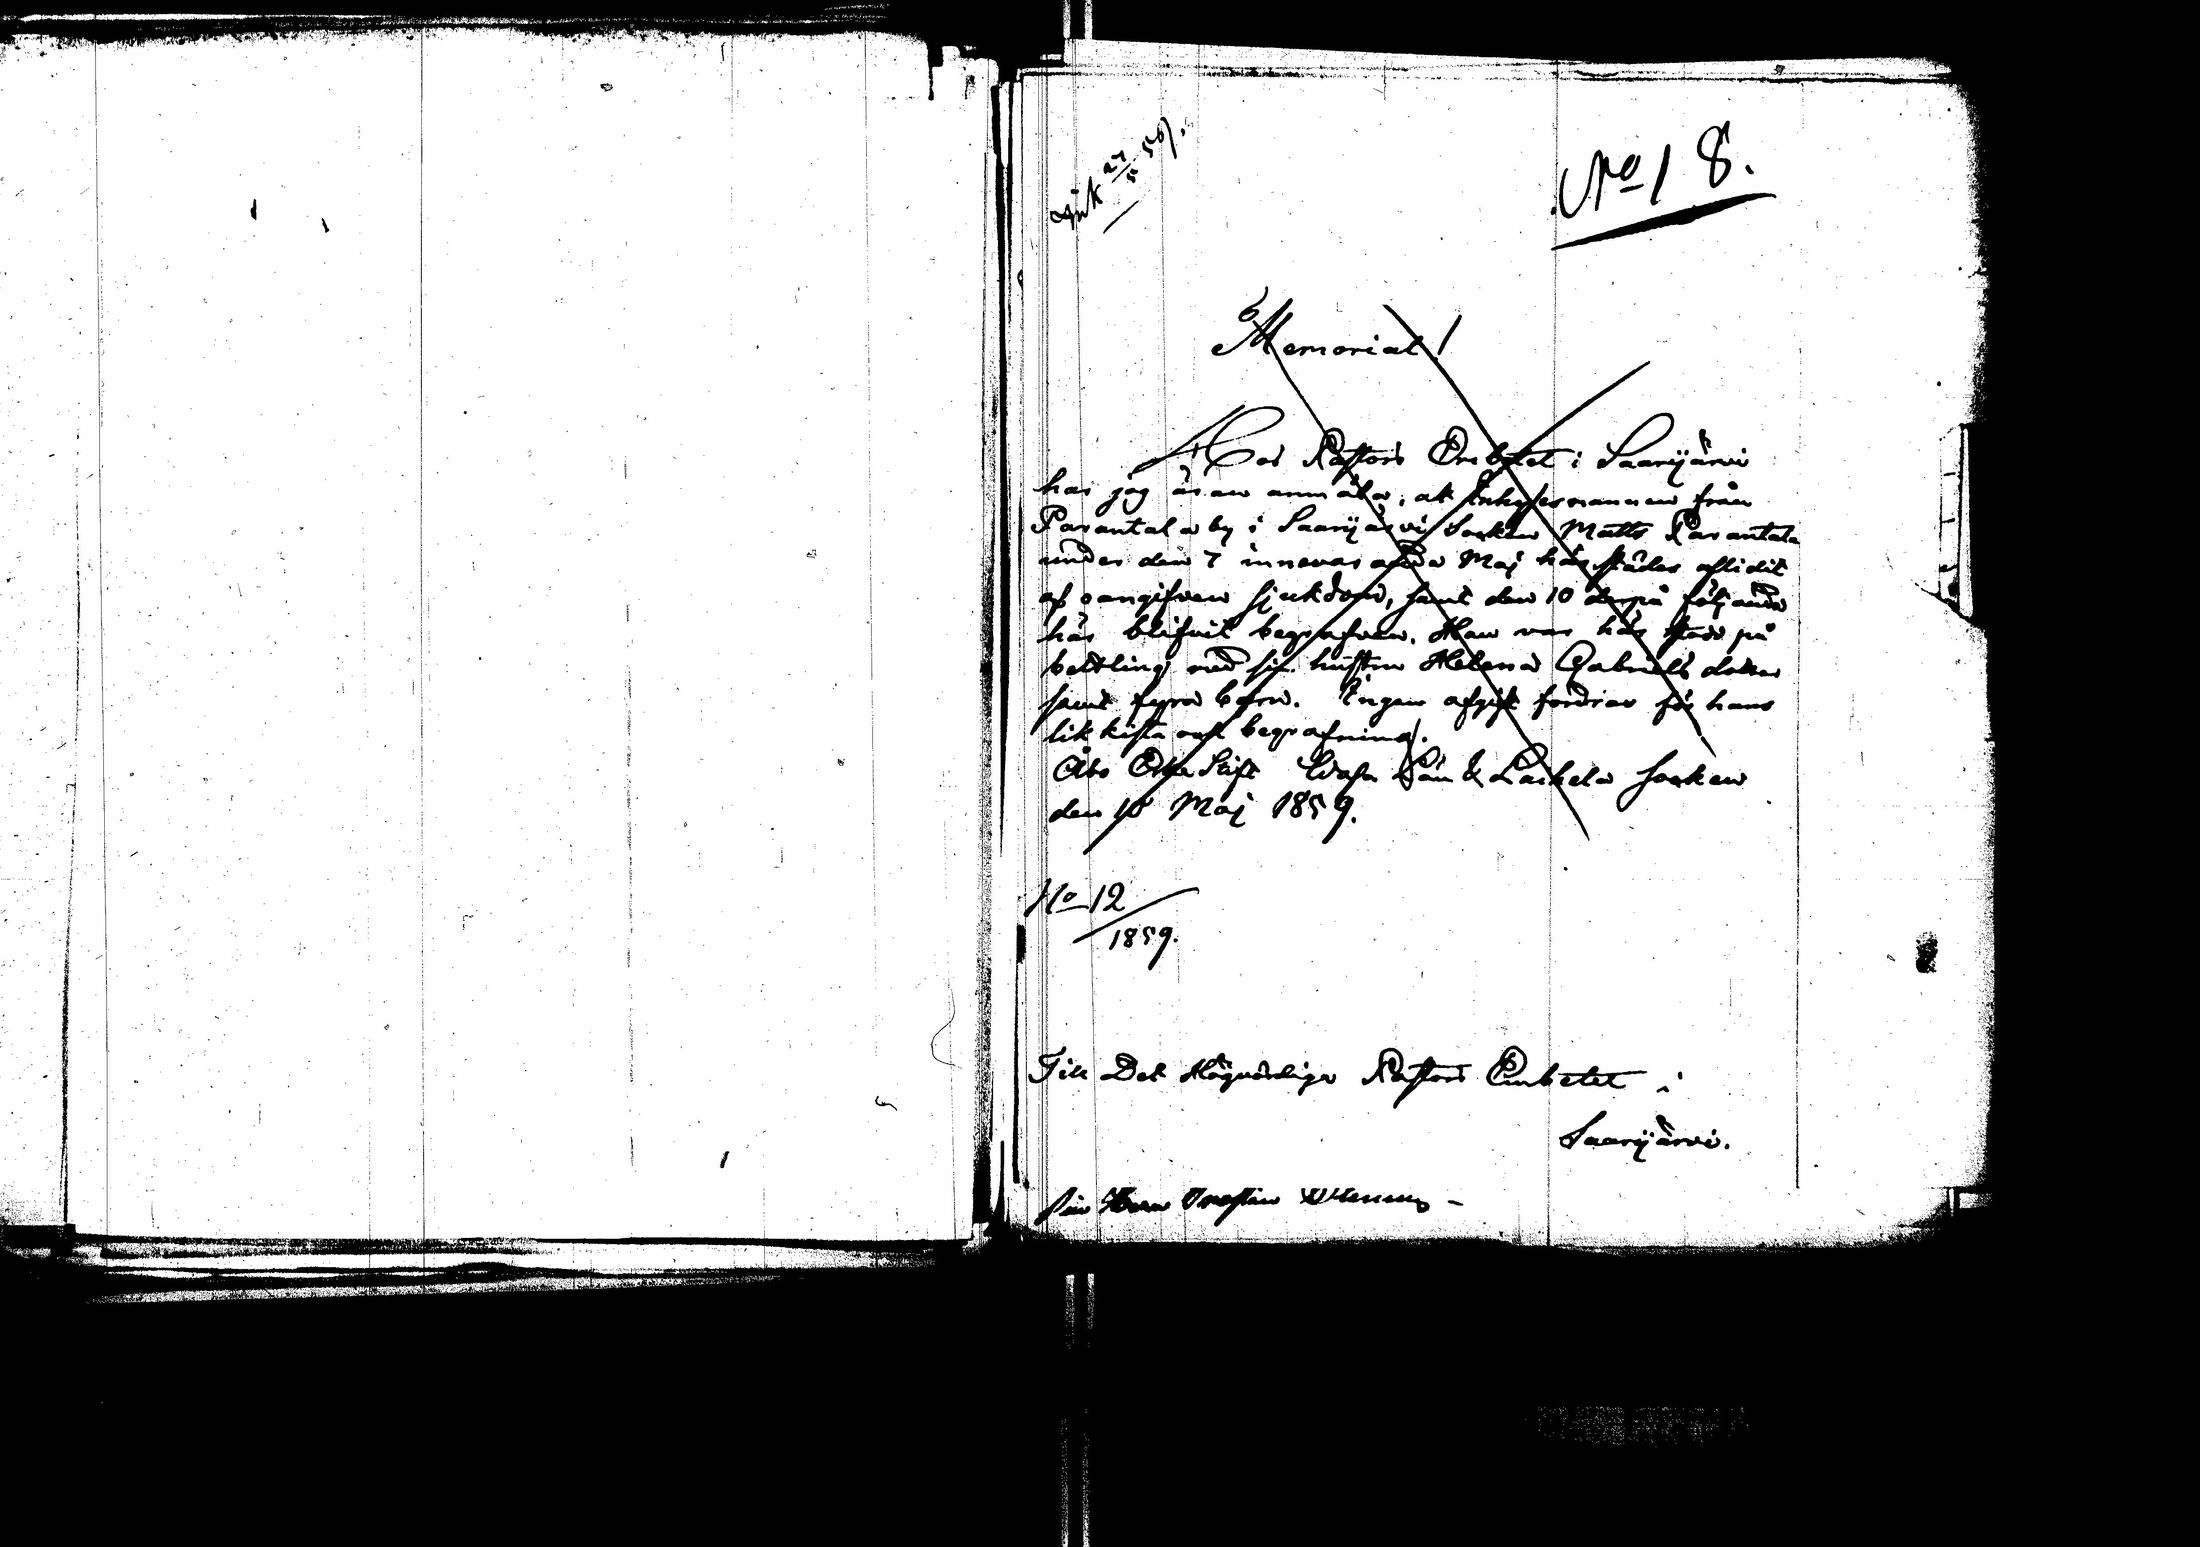 Ank 27/5 59.
No 18.
Memorial!
Hos Pastors Embetet i Saarijärvi
har jag äran anmäla, at Inhysesmannen från
Parantala by i Saarijärvi Socken Matts Parantala
under den 7 innevarande Maj härstädes aflidit
af oangifven sjukdom, samt den 10 derpå följande
här blifvit begrafven. Han var här stadd på
bettling med sin hustru Helena Gabriels dotter
samt fyra barn. Ingen afgift fordras för hans
likkista och begrafning.
Åbo Erke Stift Wasa Län & Laihela Socken
den 10 Maj 1859.
No 12
1859.
Till Det Högvördiga Pastors Embetet i
Saarijärvi.
Herr